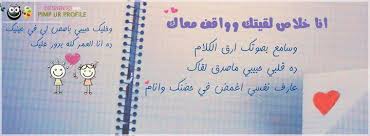 DESIGNED BY
PIMP UR PROFILE
انا خلاص لقيتك وواقف معاك
وسامع بصوتك ارق الكلام
ده قلبي حبيبي ماصدق لقاك
عارف نفسي اغمض في حضنك وانام
وخليك حبيبي باصص لي في عينيك
ده انا العمر كله بدور عليك